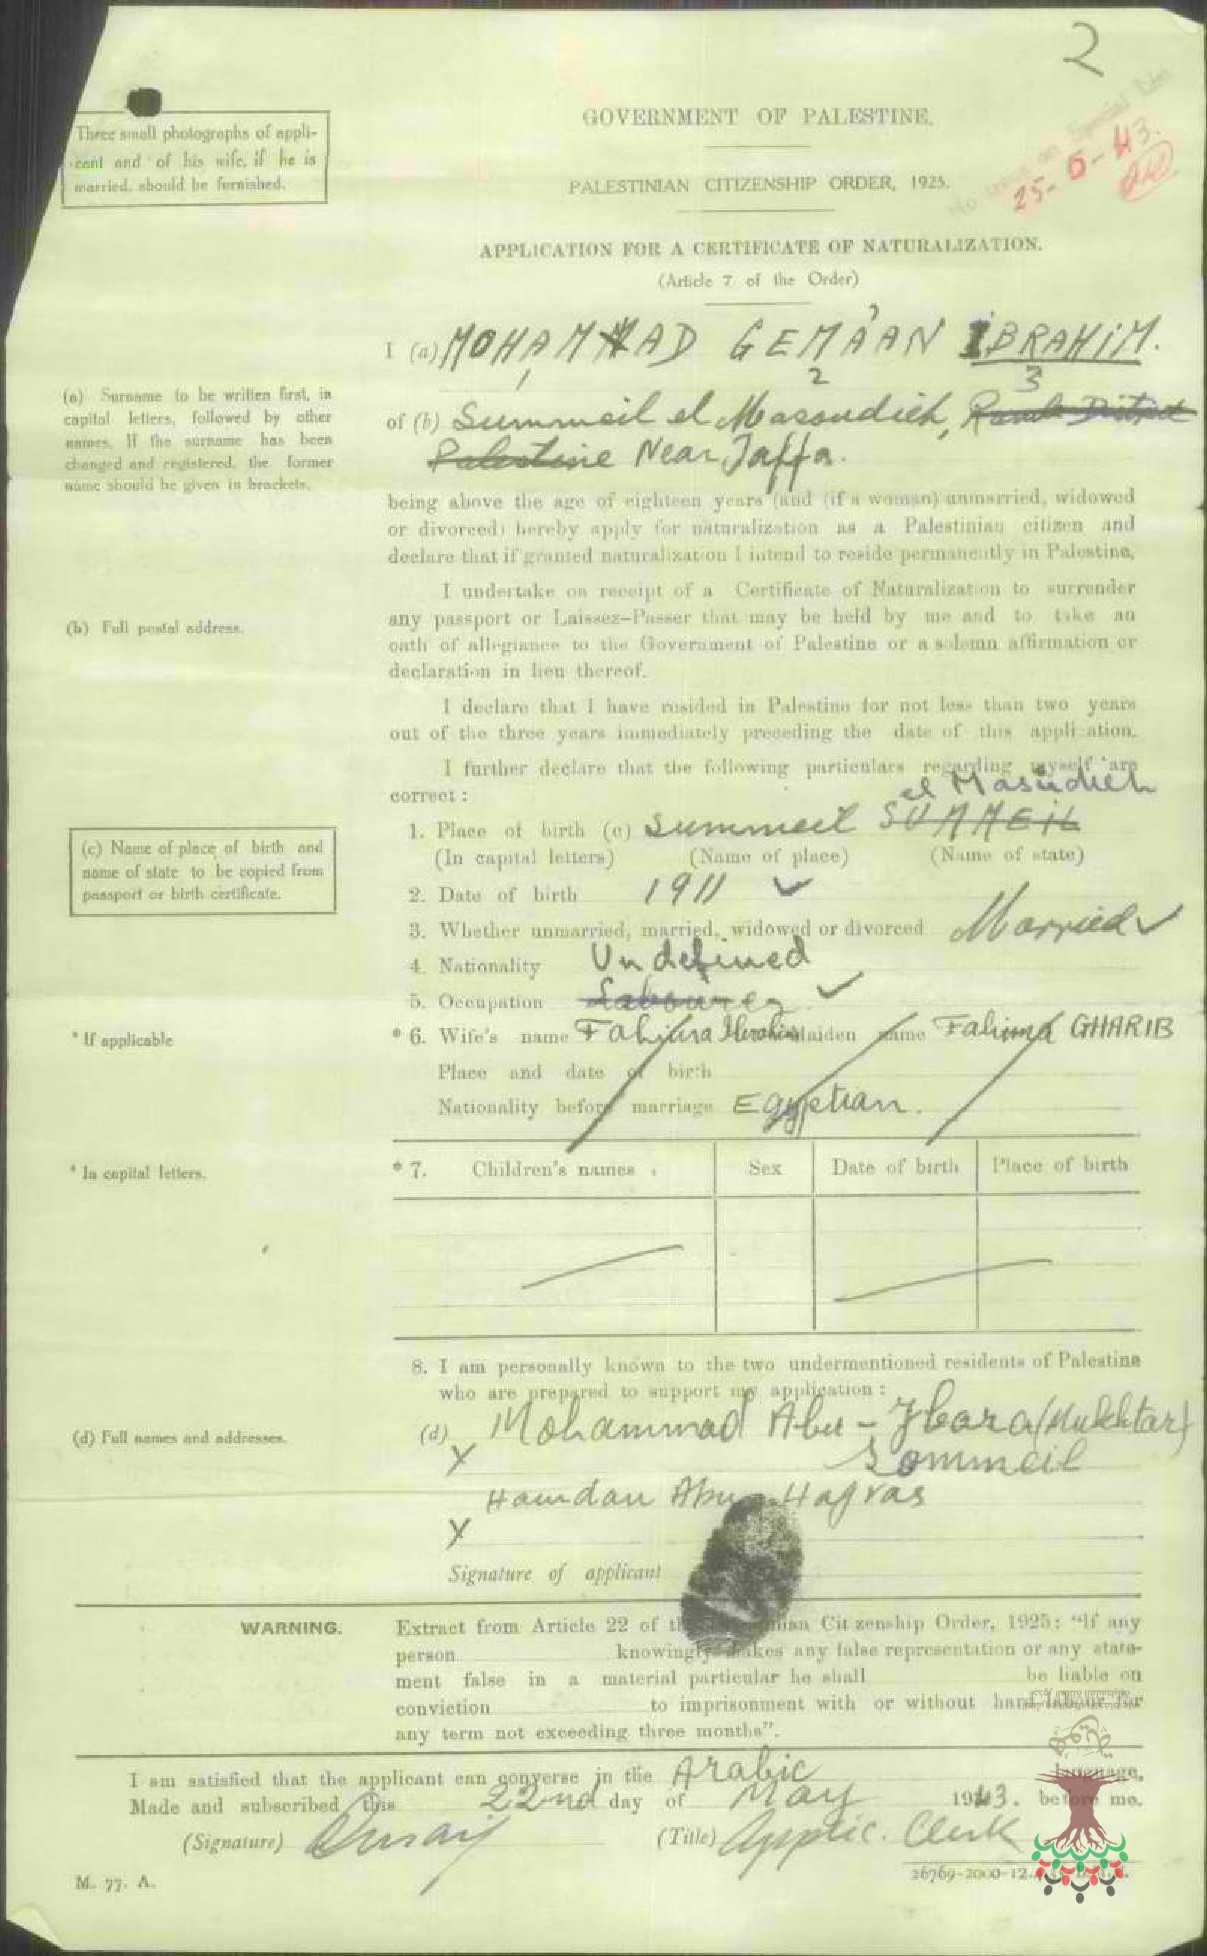 2
Three small photographs of appli-
cant and of his wife, if he is
married, should be furnished.
GOVERNMENT OF PALESTINE.
PALESTINIAN CITIZENSHIP ORDER, 1925.
25-5-43.
APPLICATION FOR A CERTIFICATE OF NATURALIZATION.
(Article 7 of the Order)
I (a) MOHAMMAD GEMA'AN IBRAHIM.
2 3
(a) Surname to be written first, in
capital letters, followed by other
names. If the surname has been
changed and registered, the former
name should be given in brackets.
of (b) Summeil el Masoudieh, Ramle District
Palestine Near Jaffa.
being above the age of eighteen years (and (if a woman) unmarried, widowed
or divorced) hereby apply for naturalization as a Palestinian citizen and
declare that if granted naturalization I intend to reside permanently in Palestine.
(b) Full postal address.
I undertake on receipt of a Certificate of Naturalization to surrender
any passport or Laissez-Passer that may be held by me and to take an
oath of allegiance to the Government of Palestine or a solemn affirmation or
declaration in lieu thereof.
I declare that I have resided in Palestine for not less than two years
out of the three years immediately preceding the date of this application.
I further declare that the following particulars regarding myself are
correct :
el Masudieh
1. Place of birth (c) Summeil SUMMEIL
(In capital letters) (Name of place) (Name of state)
(c) Name of place of birth and
name of state to be copied from
passport or birth certificate.
2. Date of birth 1911
3. Whether unmarried, married, widowed or divorced Married
4. Nationality Undefined
5. Occupation Labourer
* If applicable
* 6. Wife's name Fahima Ibrahim Maiden name Fahima GHARIB
Place and date of birth
Nationality before marriage Egyptian.
* In capital letters.
* 7. Children's names . Sex Date of birth Place of birth
8. I am personally known to the two undermentioned residents of Palestine
who are prepared to support my application :
(d) Full names and addresses.
(d) Mohammad Abu-Jbara (Mukhtar)
X Sommeil
Hamdan Abu Hafras
X
Signature of applicant
WARNING.
Extract from Article 22 of the Citizenship Order, 1925: "If any
person knowingly makes any false representation or any state-
ment false in a material particular he shall be liable on
conviction to imprisonment with or without hard labour for
any term not exceeding three months".
I am satisfied that the applicant can converse in the Arabic language.
Made and subscribed this 22nd day of May 1943. before me.
(Signature) (Title) Applic. Clerk
M. 77. A.
26769-2000-12.